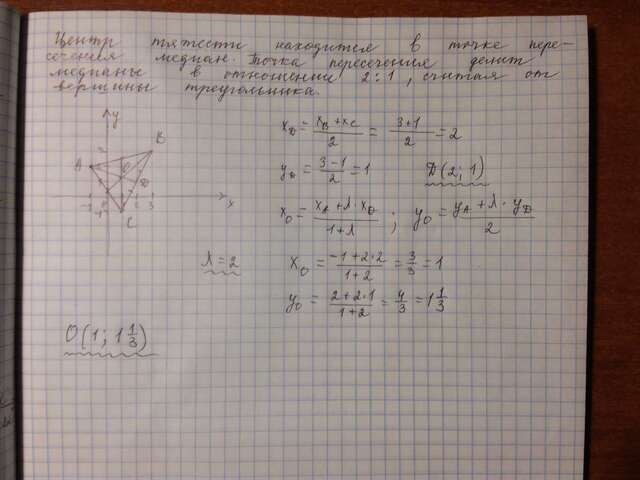 Центр тяжести находится в точке пере-
сечения медиан. Точка пересечения делит
медианы в отношении 2:1, считая от
вершины треугольника.
y
B
A
O
D
x
-1
2
3
-1
C
x_D = (x_B + x_C)/2 = (3+1)/2 = 2
y_D = (3-1)/2 = 1 D(2; 1)
x_O = (x_A + λ·x_D)/(1+λ) ; y_O = (y_A + λ·y_D)/2
λ = 2 x_O = (-1+2·2)/(1+2) = 3/3 = 1
y_O = (2+2·1)/(1+2) = 4/3 = 1 1/3
O(1; 1 1/3)